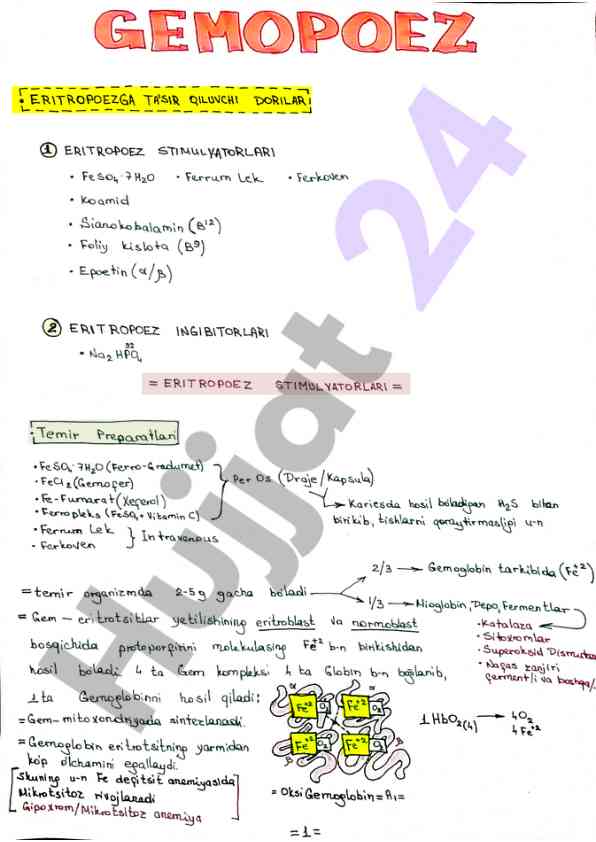 GEMOPOEZ
• ERITROPOEZGA TA'SIR QILUVCHI DORILAR
① ERITROPOEZ STIMULYATORLARI
• FeSO4·7H2O • Ferrum Lek • Ferkoven
• Koamid
• Sianokobalamin (B12)
• Foliy kislota (B9)
• Epoetin (α/β)
② ERITROPOEZ INGIBITORLARI
• Na2HPO4 32
= ERITROPOEZ STIMULYATORLARI =
• Temir Preparatlari
• FeSO4·7H2O (Ferro-Gradumet)
• FeCl2 (Gemofer)
• Fe-Fumarat (Xeferol)
• Ferropleks (FeSO4 + Vitamin C)
Per Os (Draje/Kapsula)
Kariesda hosil bo'ladigan H2S bilan
birikib, tishlarni qoraytirmasligi u-n
• Ferrum Lek
• Ferkoven
Intravenous
= temir organizmda 2-5 g gacha bo'ladi
2/3 → Gemoglobin tarkibida (Fe+2)
1/3 → Mioglobin, Depo, Fermentlar
• Katalaza
• Sitoxromlar
• Superoksid Dismutaza
• Nafas zanjiri
fermentlari va boshqa/
= Gem – eritrotsitlar yetilishining eritroblast va normoblast
bosqichida protoporfirini molekulasing Fe+2 b-n birikishidan
hosil bo'ladi. 4 ta Gem kompleksi 4 ta Globin b-n bog'lanib,
1 ta Gemoglobinni hosil qiladi:
= Gem-mitoxondriyada sintezlanadi.
= Gemoglobin eritrotsitning yarmidan
ko'p o'lchamini egallaydi.
Shuning u-n Fe defitsit anemiyasida
Mikrotsitoz rivojlanadi
Gipoxrom/Mikrotsitoz anemiya
α
Fe+2 O2
Fe+2 O2
Fe+2 O2
Fe+2
β
β
= OksiGemoglobin = A1 =
1 HbO2(4) → 4O2
4Fe+2
= 1 =
Hujjat 24